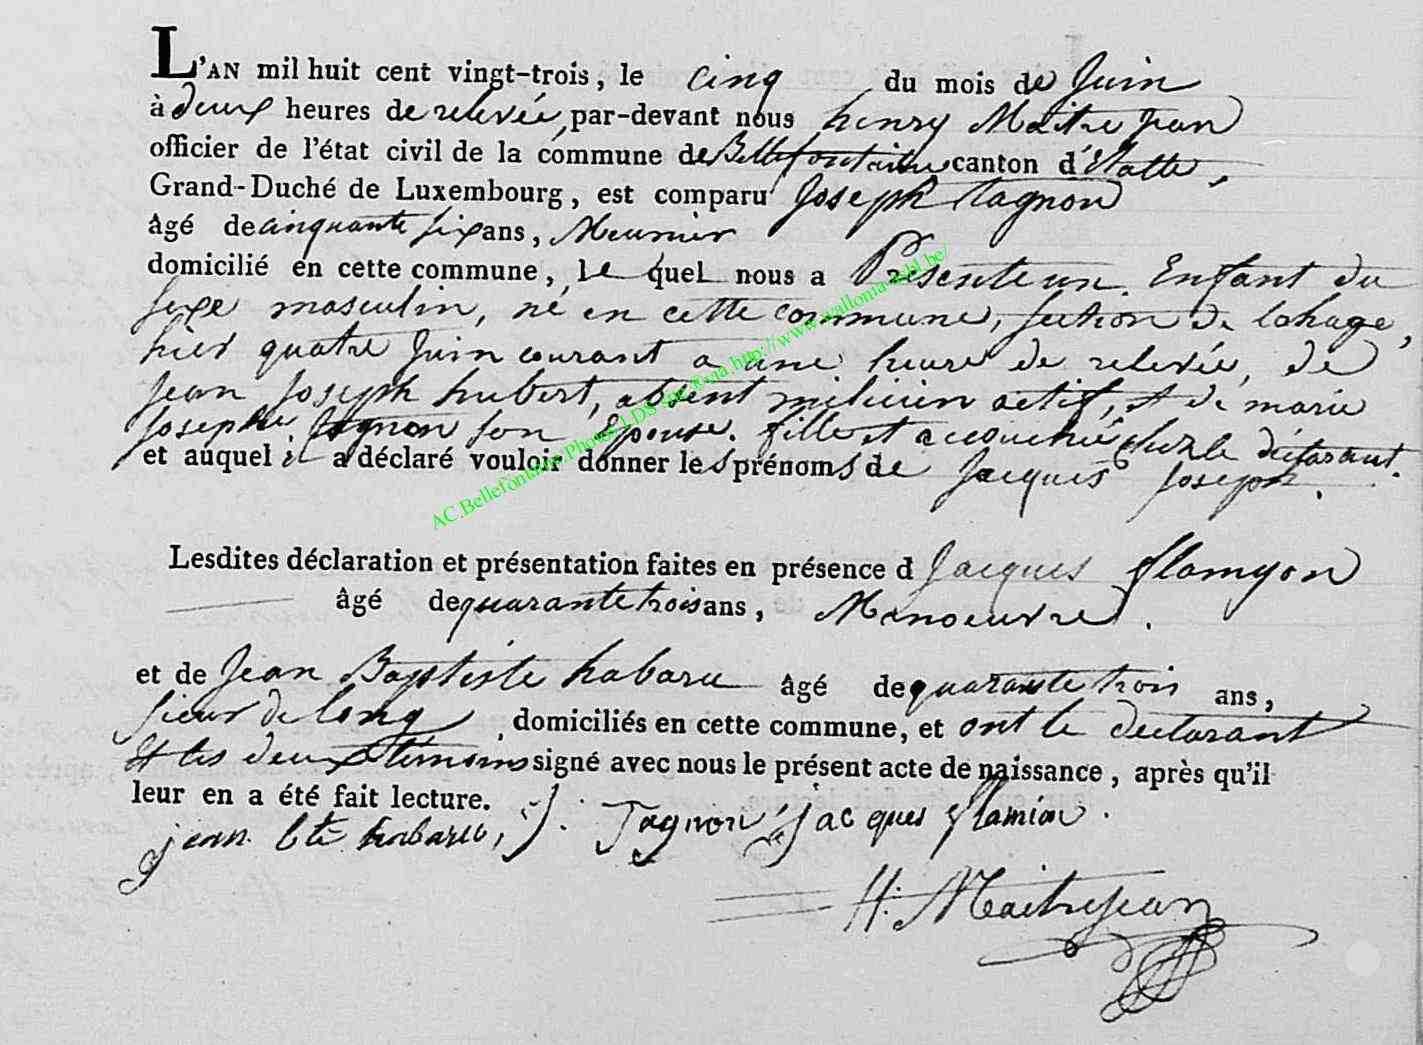 L'AN mil huit cent vingt-trois, le cinq du mois de Juin
à deux heures de relevée, par-devant nous henry Maitre Jean
officier de l'état civil de la commune de Bellefontaine canton d'Etalle,
Grand-Duché de Luxembourg, est comparu Joseph tagnon
âgé de cinquante six ans, Meunier
domicilié en cette commune, le quel nous a Présenté un Enfant du
sexe masculin, né en cette commune, section de lahage,
hier quatre Juin courant a une heure de relevée, de
Jean Joseph hubert, absent milicien actif, et de marie
Josephe tagnon son Epouse. fille et accouchée chez le déclarant.
et auquel il a déclaré vouloir donner les prénoms de Jacques Joseph.
AC.Bellefontaine.Photos LDS via @wa http://www.wallonia-asbl.be/
Lesdites déclaration et présentation faites en présence d Jacques flamyon
âgé de quarante trois ans, Manoeuvre.
et de Jean Baptiste habaru âgé de quarante trois ans,
sieur de long, domiciliés en cette commune, et ont le déclarant
et les deux témoins signé avec nous le présent acte de naissance, après qu'il
leur en a été fait lecture.
jean bte habaru, J: Tagnon, jacques flamion.
H. Maitrejean